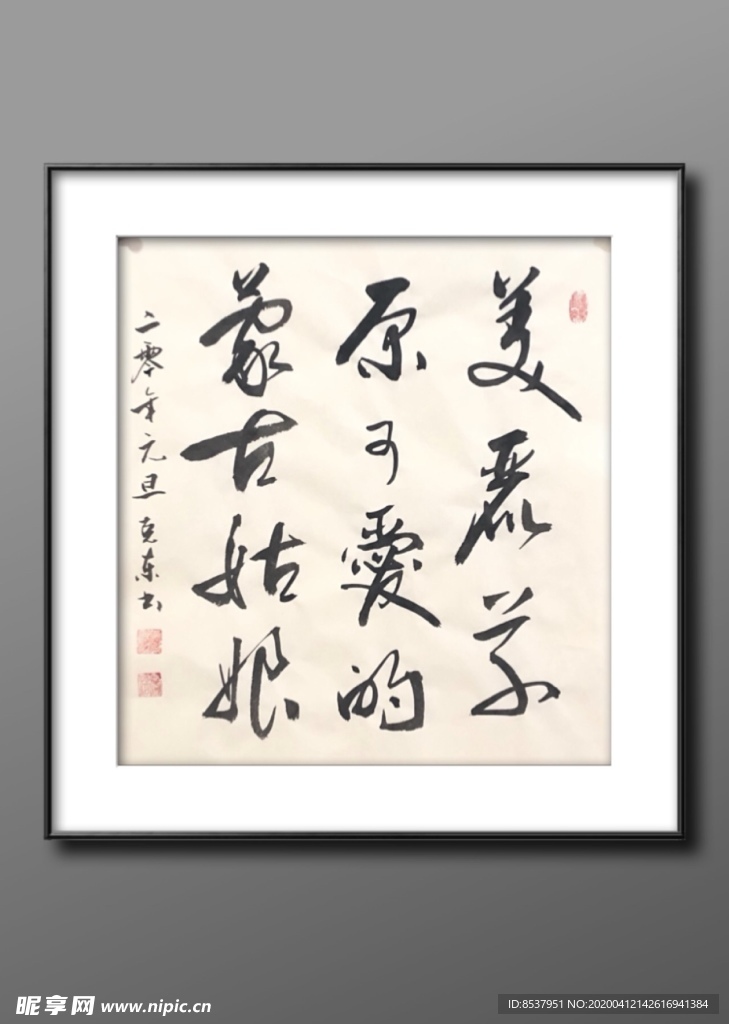 美麗草
原可愛的
蒙古姑娘
二零年元旦 克东书
昵享网 www.nipic.cn
ID:8537951 NO:20200412142616941384